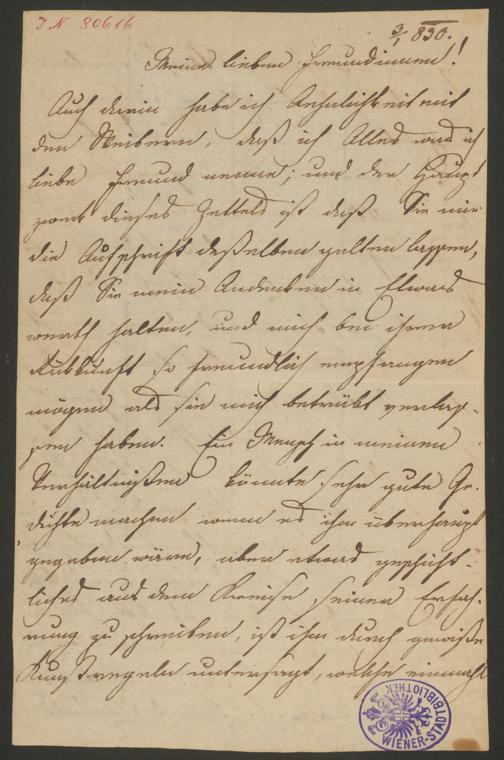 IN 80616
3/1 830.
Meine lieben Freundinnen!
Auch darin habe ich Aehnlichkeit mit
den Weibern, daß ich Alles was ich
liebe Freund nenne; und der Haupt
zwek dieses Zettels ist daß Sie mir
die Aufschrift deßelben gelten lassen,
daß Sie mein Andenken in Etwas
werth halten, und mich bei ihrer
Rükkunft so freundlich empfangen
mögen als sie mich betrübt verlas-
sen haben. Ein Mensch in meinen
Verhältnißen könnte sehr gute Ge-
dichte machen wenn es ihm überhaupt
gegeben wäre, aber etwas geschicht-
liches aus dem Kreise seiner Erfah-
rung zu schreiben, ist ihm durch gewiße
Kunstregeln untersagt, welche einmahl
WIENER-STADTBIBLIOTHEK